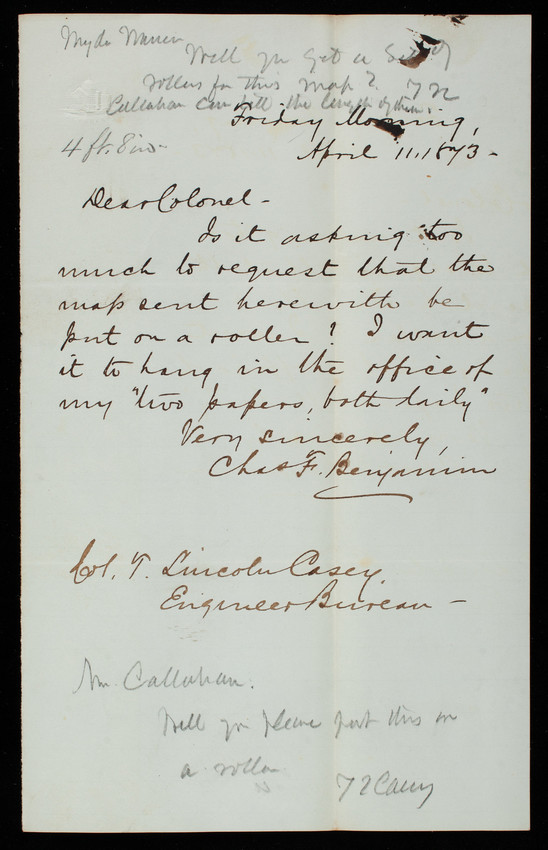 My dr Warren
Will you get a set of
rollers for this map? TLC
Callahan can tell the length of them.
4 ft. 8 ins.
Friday Morning,
April 11, 1873 -
Dear Colonel -
Is it asking too
much to request that the
map sent herewith be
put on a roller? I want
it to hang in the office of
my "two papers, both daily"
Very sincerely,
Chas F. Benjamin
Col. T. Lincoln Casey,
Engineer Bureau -
Mr. Callahan.
Will you please put this on
a roller
T L Casey